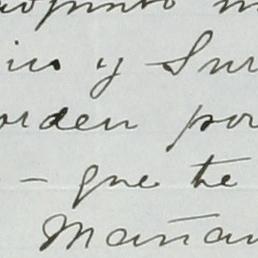 y Sur
orden por
- que he
Mañan